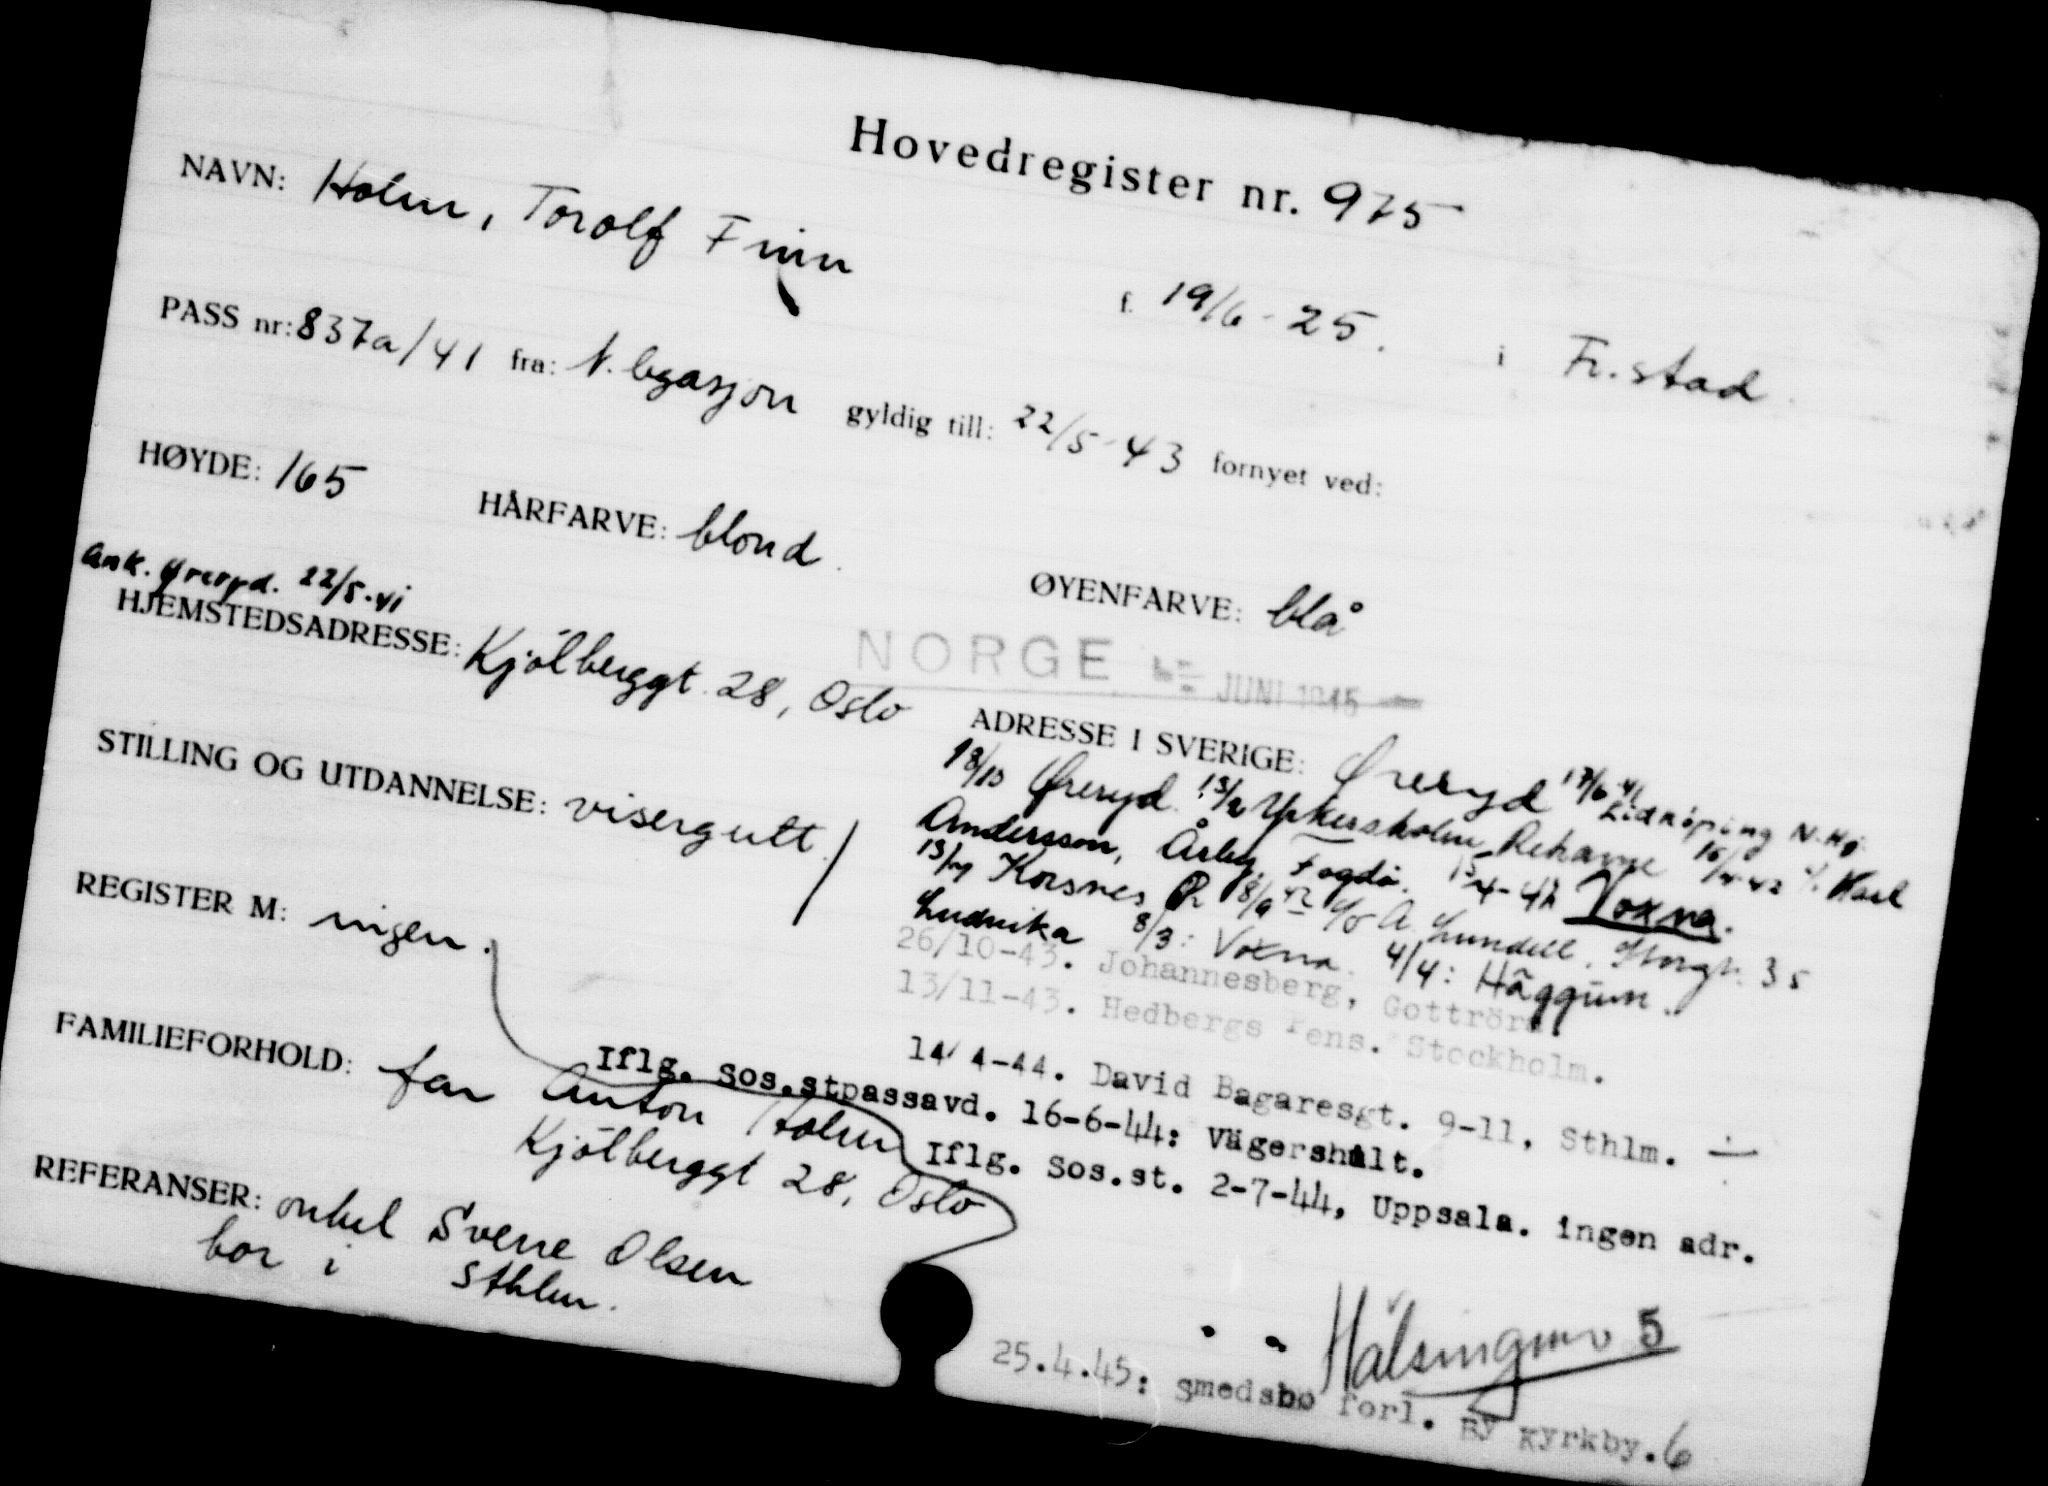 Hovedregister nr. 975
NAVN: Holm, Torolf Finn
f. 19/6-25. i Fr.stad
PASS nr: 837a/41 fra: N. legasjon gyldig till: 22/5-43 fornyet ved:
HØYDE: 165 HÅRFARVE: blond. ØYENFARVE: blå
Ank. Øreryd. 22/5-41
HJEMSTEDSADRESSE: Kjölberggt. 28, Oslo
NORGE JUNI 1945
STILLING OG UTDANNELSE: visergutt.
REGISTER M: ingen.
FAMILIEFORHOLD: far Anton Holm
Kjölberggt 28, Oslo
REFERANSER: onkel Sverre Olsen
bor i Sthlm.
ADRESSE I SVERIGE: Øreryd 17/6 41 Lidköping N.Hj.
18/10 Øreryd. 13/2 Ykersholm, Rekarne 16/4-42 c/o Karl
Andersson, Årby, Fogdö. 15/4-42 Voxna.
13/7 Korsnes 8/9 42 c/o A. Lundell, Storgt. 35
Ludvika 8/3: Voxna. 4/4: Häggum.
26/10-43. Johannesberg, Gottröra
13/11-43. Hedbergs Pens. Stockholm.
14/4-44. David Bagaresgt. 9-11, Sthlm.
Iflg. sos.stpassavd. 16-6-44: Vägershult.
Iflg. Sos.st. 2-7-44, Uppsala. ingen adr.
" " Hälsingmo 5
25.4.45: Smedsbo forl. By kyrkby. 6